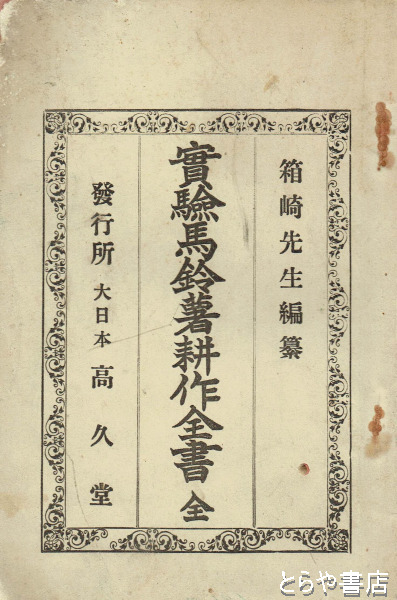 箱崎先生編纂
實驗馬鈴薯耕作全書 全
發行所 大日本 高久堂
とらや書店